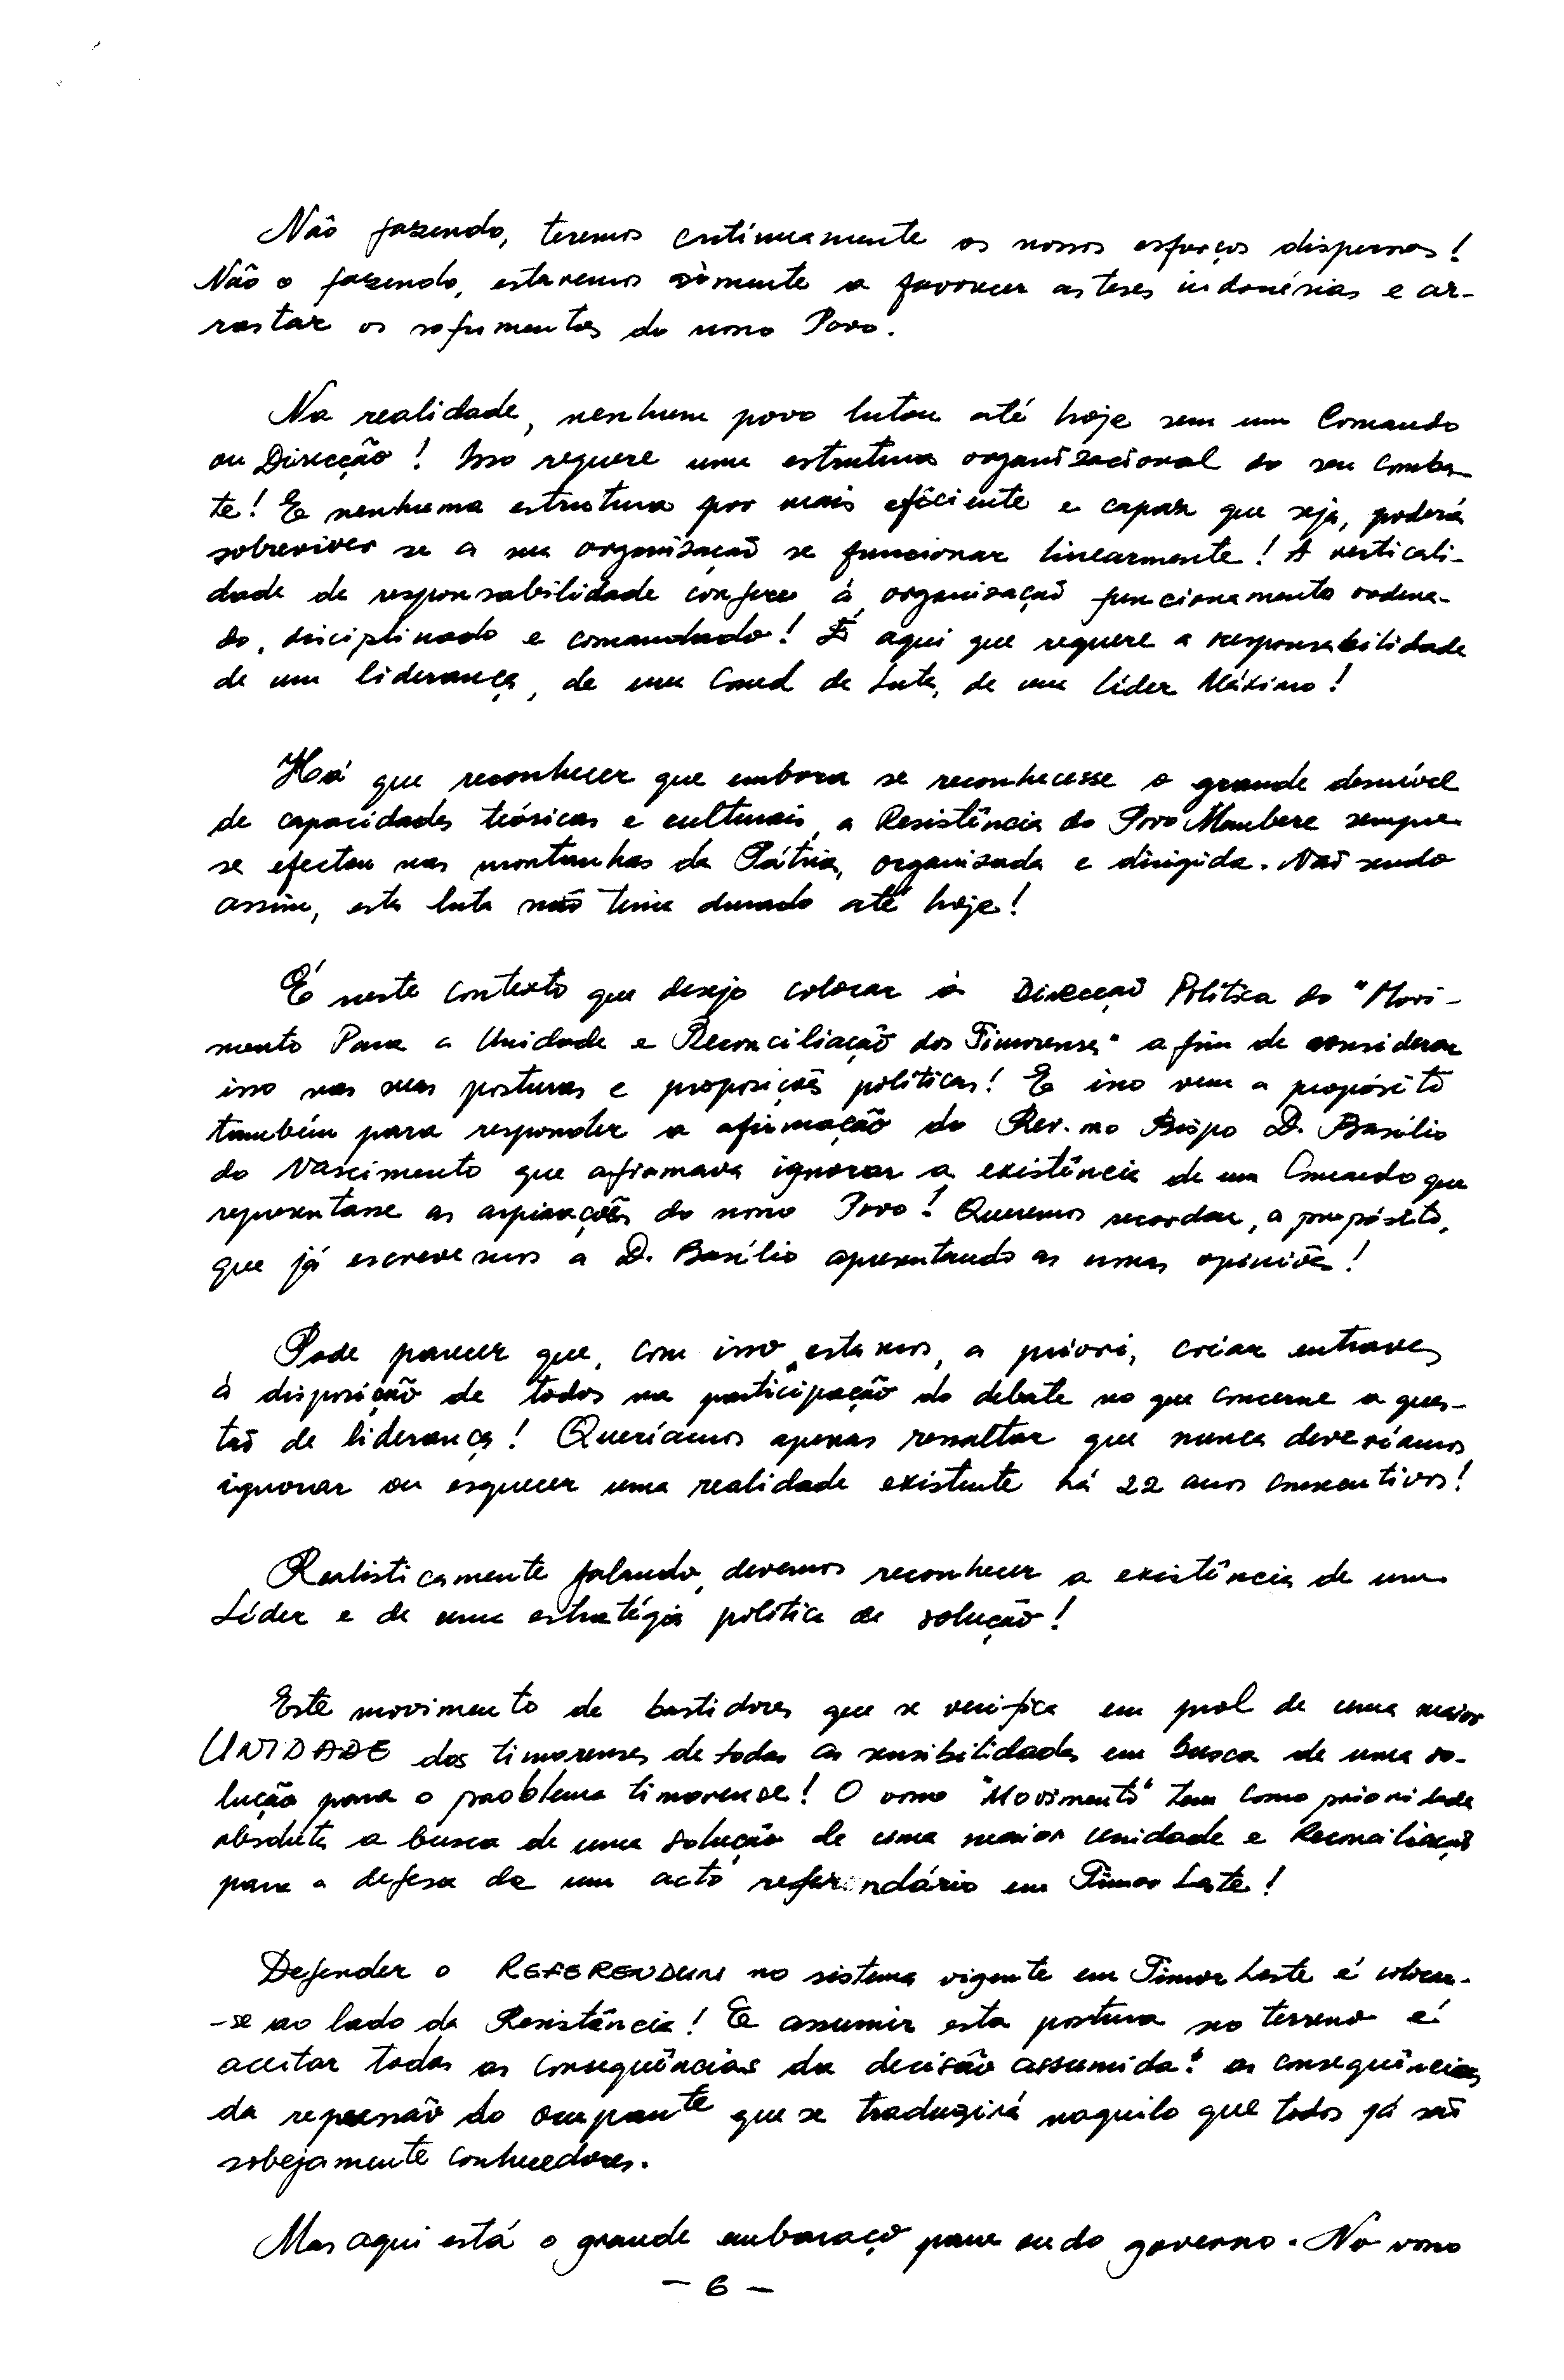 Não fazendo, teremos continuamente os nossos esforços dispersos!
Não o fazendo, estaremos sòmente a favorecer as teses indonésias e ar-
rastar os sofrimentos do nosso Povo.
Na realidade, nenhum povo lutou até hoje sem um Comando
ou Direcção! Isso requere uma estrutura organizacional do seu comba-
te! E nenhuma estrutura por mais eficiente e capaz que seja, poderá
sobreviver se a sua organização se funcionar linearmente! A verticali-
dade de responsabilidade confere à organização funcionamento ordena-
do, disciplinado e comandado! É aqui que requere a responsabilidade
de um liderança, de um Comd de Luta, de um Líder Máximo!
Há que reconhecer que embora se reconhecesse o grande desnível
de capacidades teóricas e culturais, a Resistência do Povo Maubere sempre
se efectou nas montanhas da Pátria, organizada e dirigida. Não sendo
assim, esta luta não teria durado até hoje!
É neste contexto que desejo colocar à Direcção Política do "Movi-
mento Para a Unidade e Reconciliação dos Timorenses" a fim de considerar
isso nas suas posturas e proposições políticas! E isso vem a propósito
também para responder a afirmação do Rev.mo Bispo D. Basílio
do Nascimento que afirmava ignorar a existência de um Comando que
representasse as aspirações do nosso Povo! Queremos recordar, a propósito,
que já escrevemos a D. Basílio apresentando as nossas opiniões!
Pode parecer que, com isso, estamos, a priori, criar entraves
à disposição de todos na participação do debate no que concerne a ques-
tão de liderança! Queríamos apenas ressaltar que nunca deveríamos
ignorar ou esquecer uma realidade existente há 22 anos consecutivos!
Realisticamente falando, devemos reconhecer a existência de um
Líder e de uma estratégia política de solução!
Este movimento de bastidores que se verifica em prol de uma maior
UNIDADE dos timorenses de todas as sensibilidades em busca de uma so-
lução para o problema timorense! O vosso "Movimento" tem como prioridade
absoluta a busca de uma solução de uma maior unidade e Reconciliação
para a defesa de um acto referendário em Timor Leste!
Defender o REFERENDUM no sistema vigente em Timor Leste é colocar-
-se ao lado da Resistência! E assumir esta postura no terreno é
aceitar todas as consequências da decisão assumida: as consequências
da repressão do ocupante que se traduzirá naquilo que todos já são
sobejamente conhecedores.
Mas aqui está o grande embaraço para do governo. No vosso
- 6 -